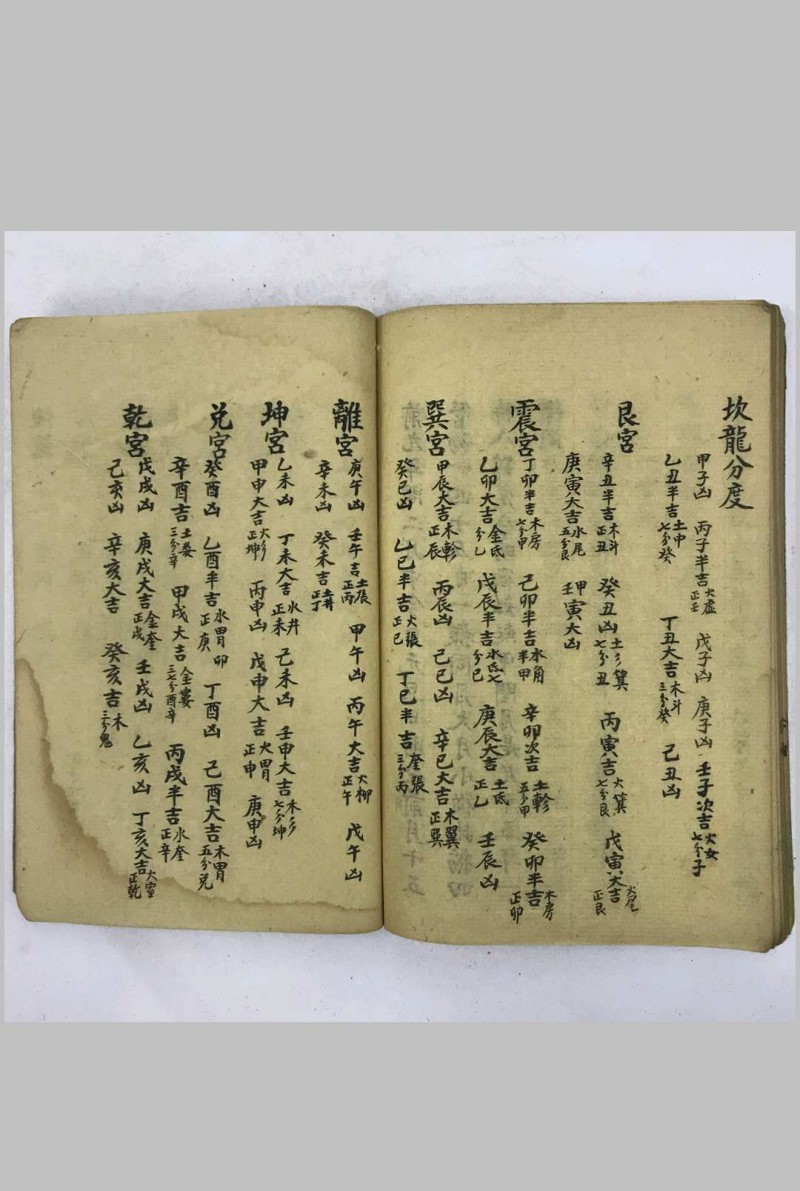 坎龍分度
甲子凶 丙子半吉火虛正壬 戊子凶 庚子凶 壬子次吉火女七分子
乙丑半吉土中七分癸 丁丑大吉木斗三分癸 己丑凶
艮宮
辛丑半吉木斗正丑 癸丑凶土箕七分丑 丙寅吉火箕七分艮 戊寅大吉火尾正艮
庚寅大吉水尾五分艮 壬甲寅大凶
震宮
丁卯半吉木房七分甲 己卯半吉水角半甲 辛卯次吉土軫五分甲 癸卯半吉木房正卯
乙卯大吉金氐分乙 戊辰半吉水氐七分巳 庚辰大吉土氐正乙 壬辰凶
巽宮
甲辰大吉木軫正辰 丙辰凶 己巳凶 辛巳大吉木翼正巽
癸巳凶 乙巳半吉火張正巳 丁巳半吉奎張三分丙
離宮
庚午凶 壬午吉土張正丙 甲午凶 丙午大吉火柳正午 戊午凶
辛未凶 癸未吉土井正丁
坤宮
乙未凶 丁未大吉水井正未 己未凶 壬申大吉木參七分坤
甲申大吉火參正坤 丙申凶 戊申大吉火胃正申 庚申凶
兌宮
癸酉凶 乙酉半吉水胃卯正庚 丁酉凶 己酉大吉木胃五分兌
辛酉吉土婁三分辛 甲戌大吉金婁三七分酉辛 丙戌半吉水奎正辛
乾宮
戊戌凶 庚戌大吉金奎正戌 壬戌凶 乙亥凶 丁亥大吉火室正乾
己亥凶 辛亥大吉 癸亥吉木三分鬼